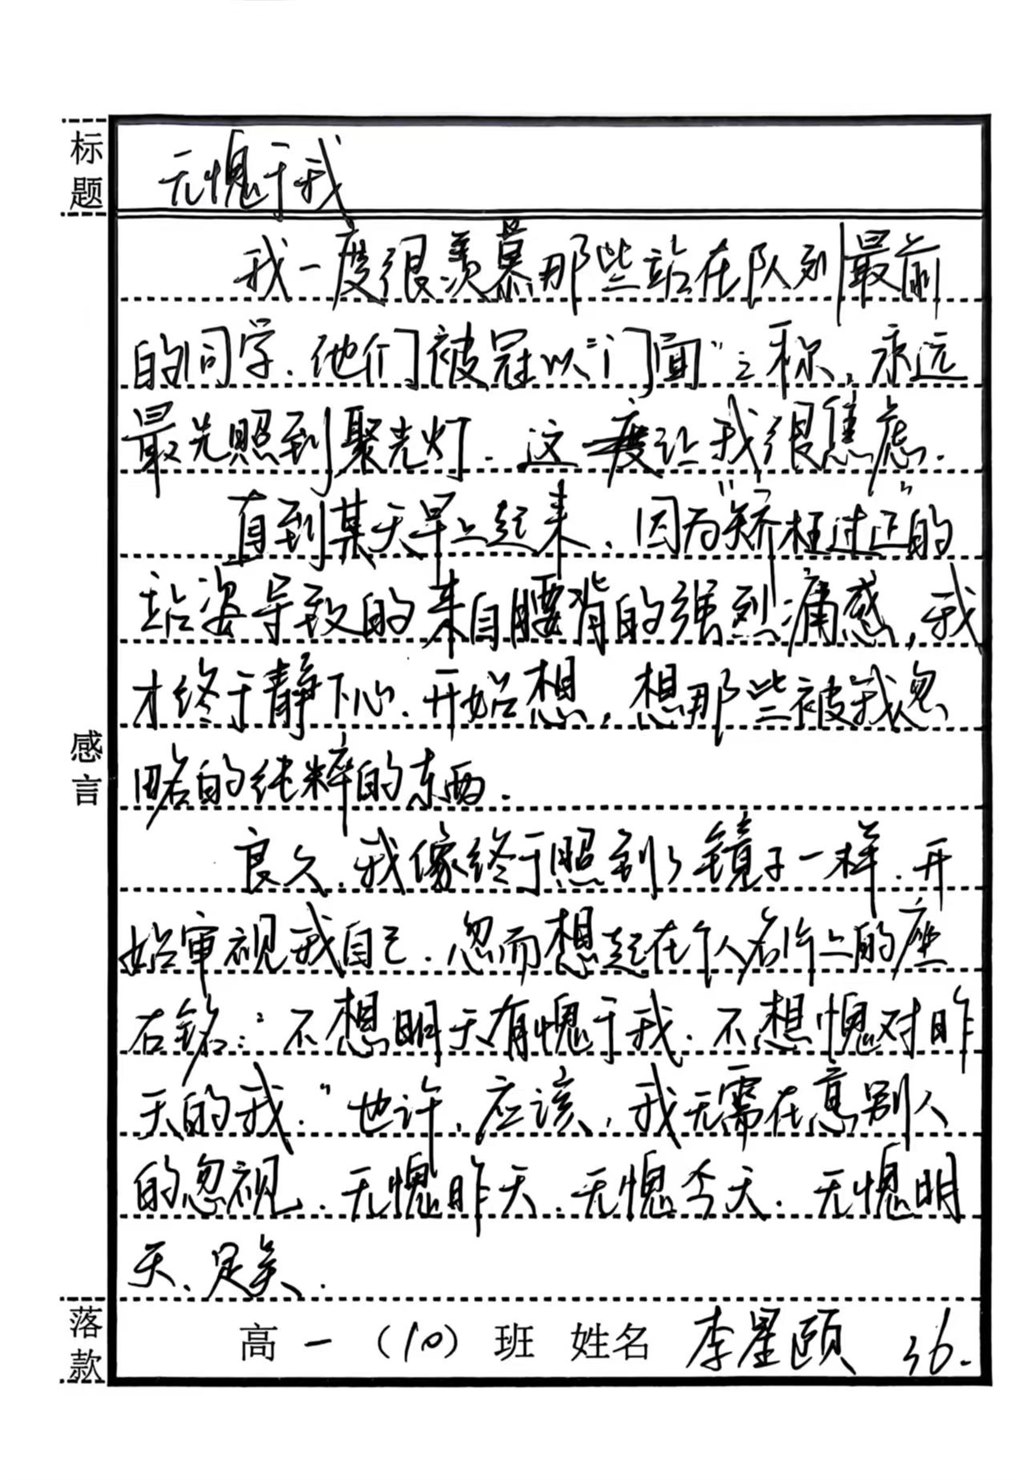 标题
无愧于我
我一度很羡慕那些站在队列最前
的同学.他们被冠以"门面"之称,永远
最先照到聚光灯.这一度让我很焦虑.
直到某天早上起来,因为"矫枉过正"的
站姿导致的来自腰背的强烈痛感,我
才终于静下心.开始想,想那些被我忽
略的纯粹的东西.
感言
良久,我像终于照到了镜子一样.开
始审视我自己.忽而想起在个人名片上的座
右铭:"不想明天有愧于我.不想愧对昨
天的我."也许,应该,我无需在意别人
的忽视.无愧昨天.无愧今天.无愧明
天、足矣.
落款
高一(10)班 姓名 李星颐 36.